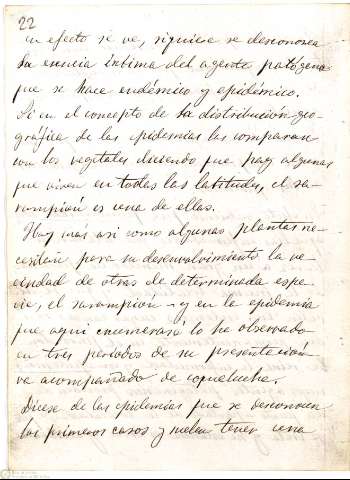 22
en efecto se ve, siquiera se desconozca
la esencia íntima del agente patógeno
que se hace endémico y epidémico.
Si en el concepto de la distribución geo-
gráfica de las epidemias las comparan
con los vegetales diciendo que hay algunas
que viven en todas las latitudes, el sa-
rampión es una de ellas.
Hay más así como algunas plantas ne-
cesitan para su desenvolvimiento la ve-
cindad de otras de determinada espe-
cie, el sarampión y en la epidemia
que aquí enumeraré lo he observado
en tres periodos de su presentación
va acompañado de coqueluche.
Dícese de las epidemias que se desconocen
los primeros casos y suelen tener una